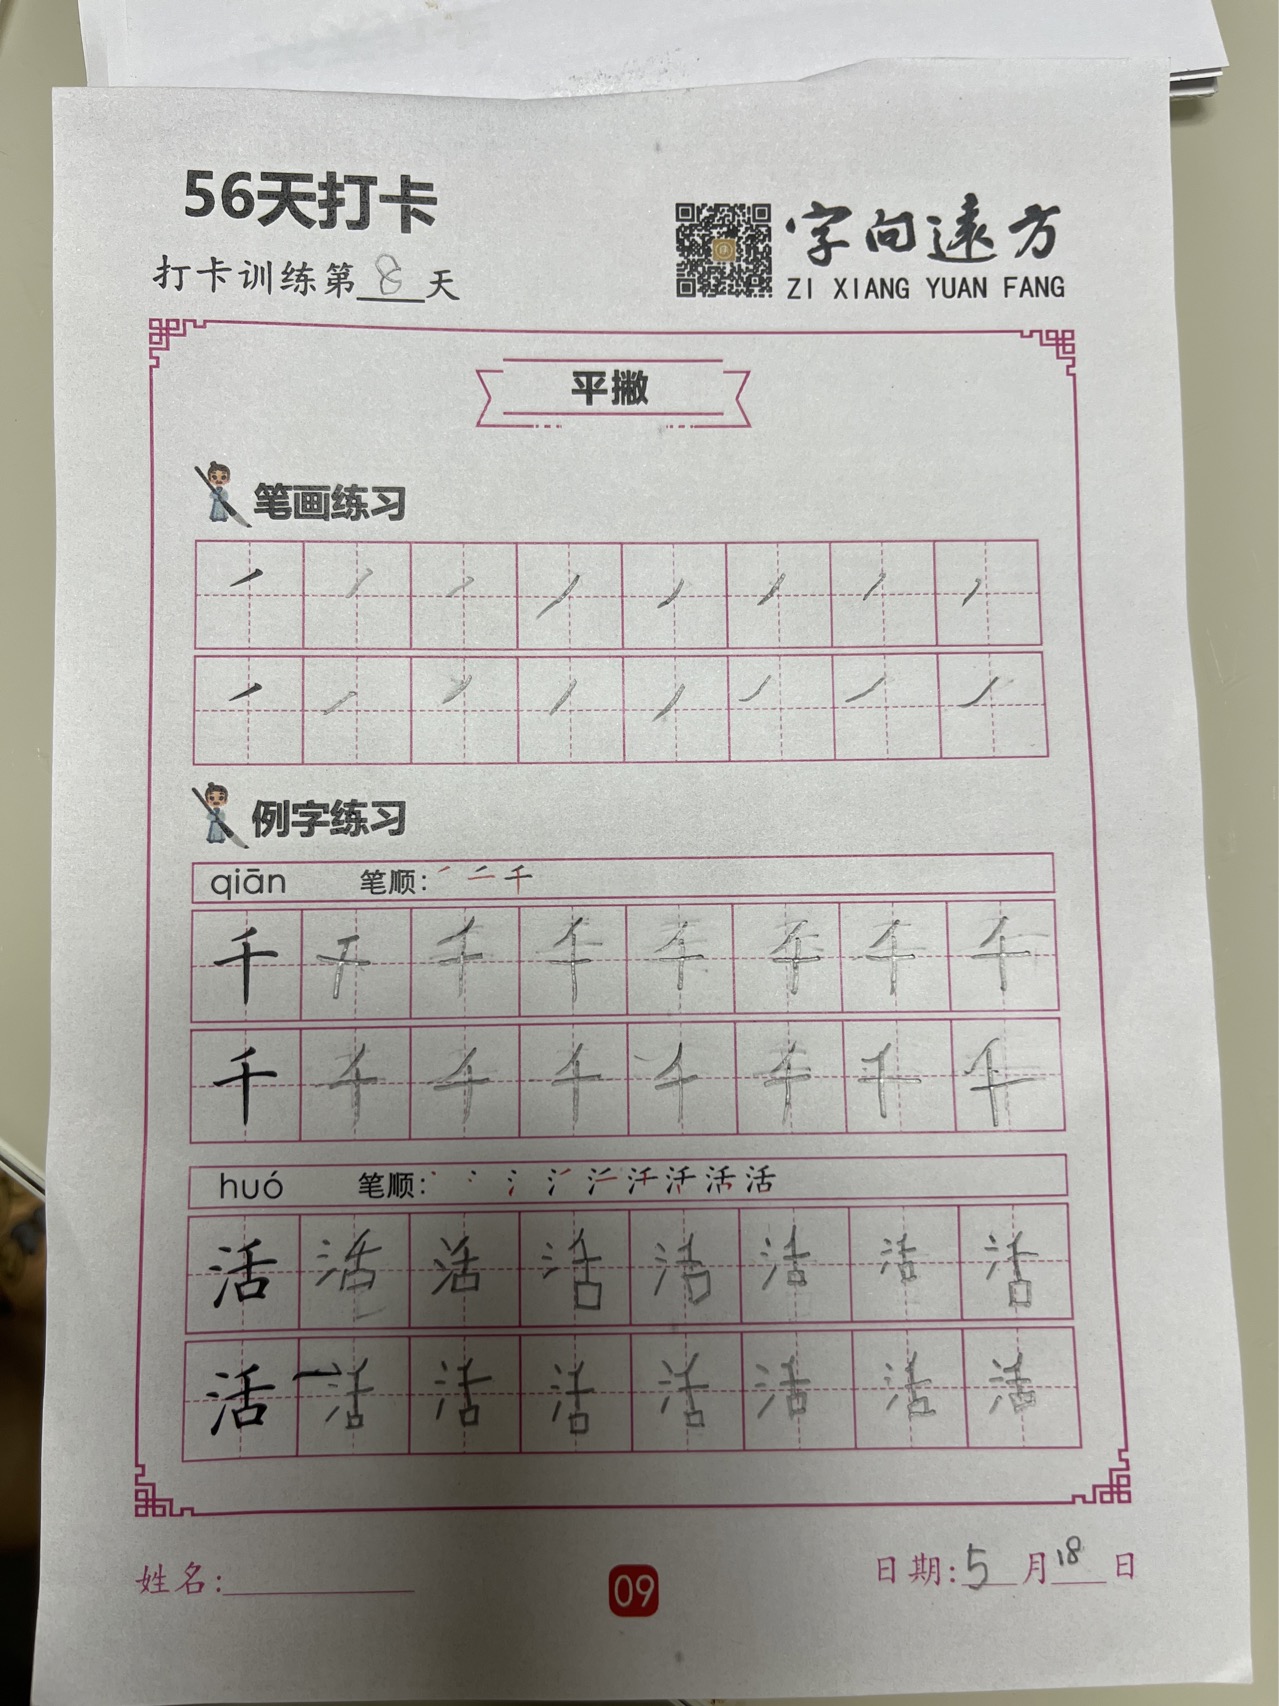 56天打卡
打卡训练第8天
字向遠方
ZI XIANG YUAN FANG
平撇
笔画练习
㇒ ㇒ ㇒ ㇒ ㇒ ㇒ ㇒ ㇒
㇒ ㇒ ㇒ ㇒ ㇒ ㇒ ㇒ ㇒
例字练习
qiān 笔顺: ㇒ 二 千
千 千 千 千 千 千 千 千
千 千 千 千 千 千 千 千
huó 笔顺: 活
活 活 活 活 活 活 活 活
活 活 活 活 活 活 活 活
姓名:
09
日期:5月18日